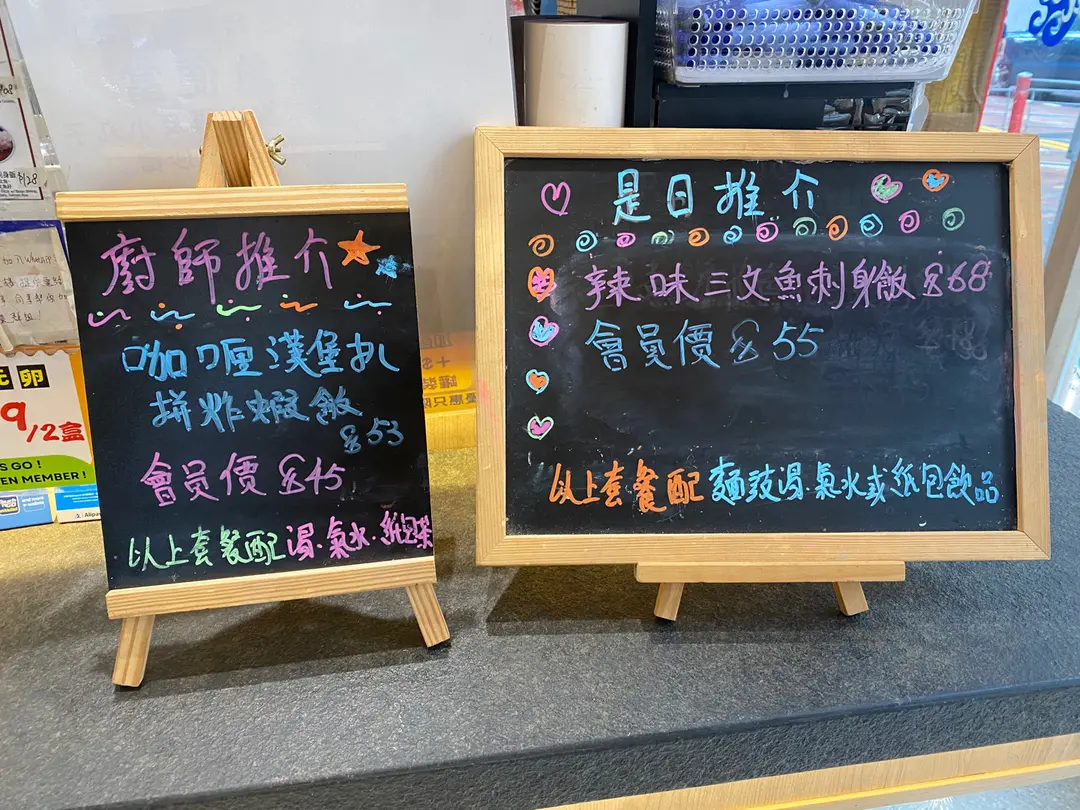 廚師推介
咖喱漢堡扒
拼炸蝦飯
$53
會員價 $45
以上套餐配湯.氣水.紙包茶
是日推介
辣味三文魚刺身飯 $68
會員價 $55
以上套餐配 麵豉湯.氣水或紙包飲品
$128
卵
9/2盒
S GO!
EN MEMBER!